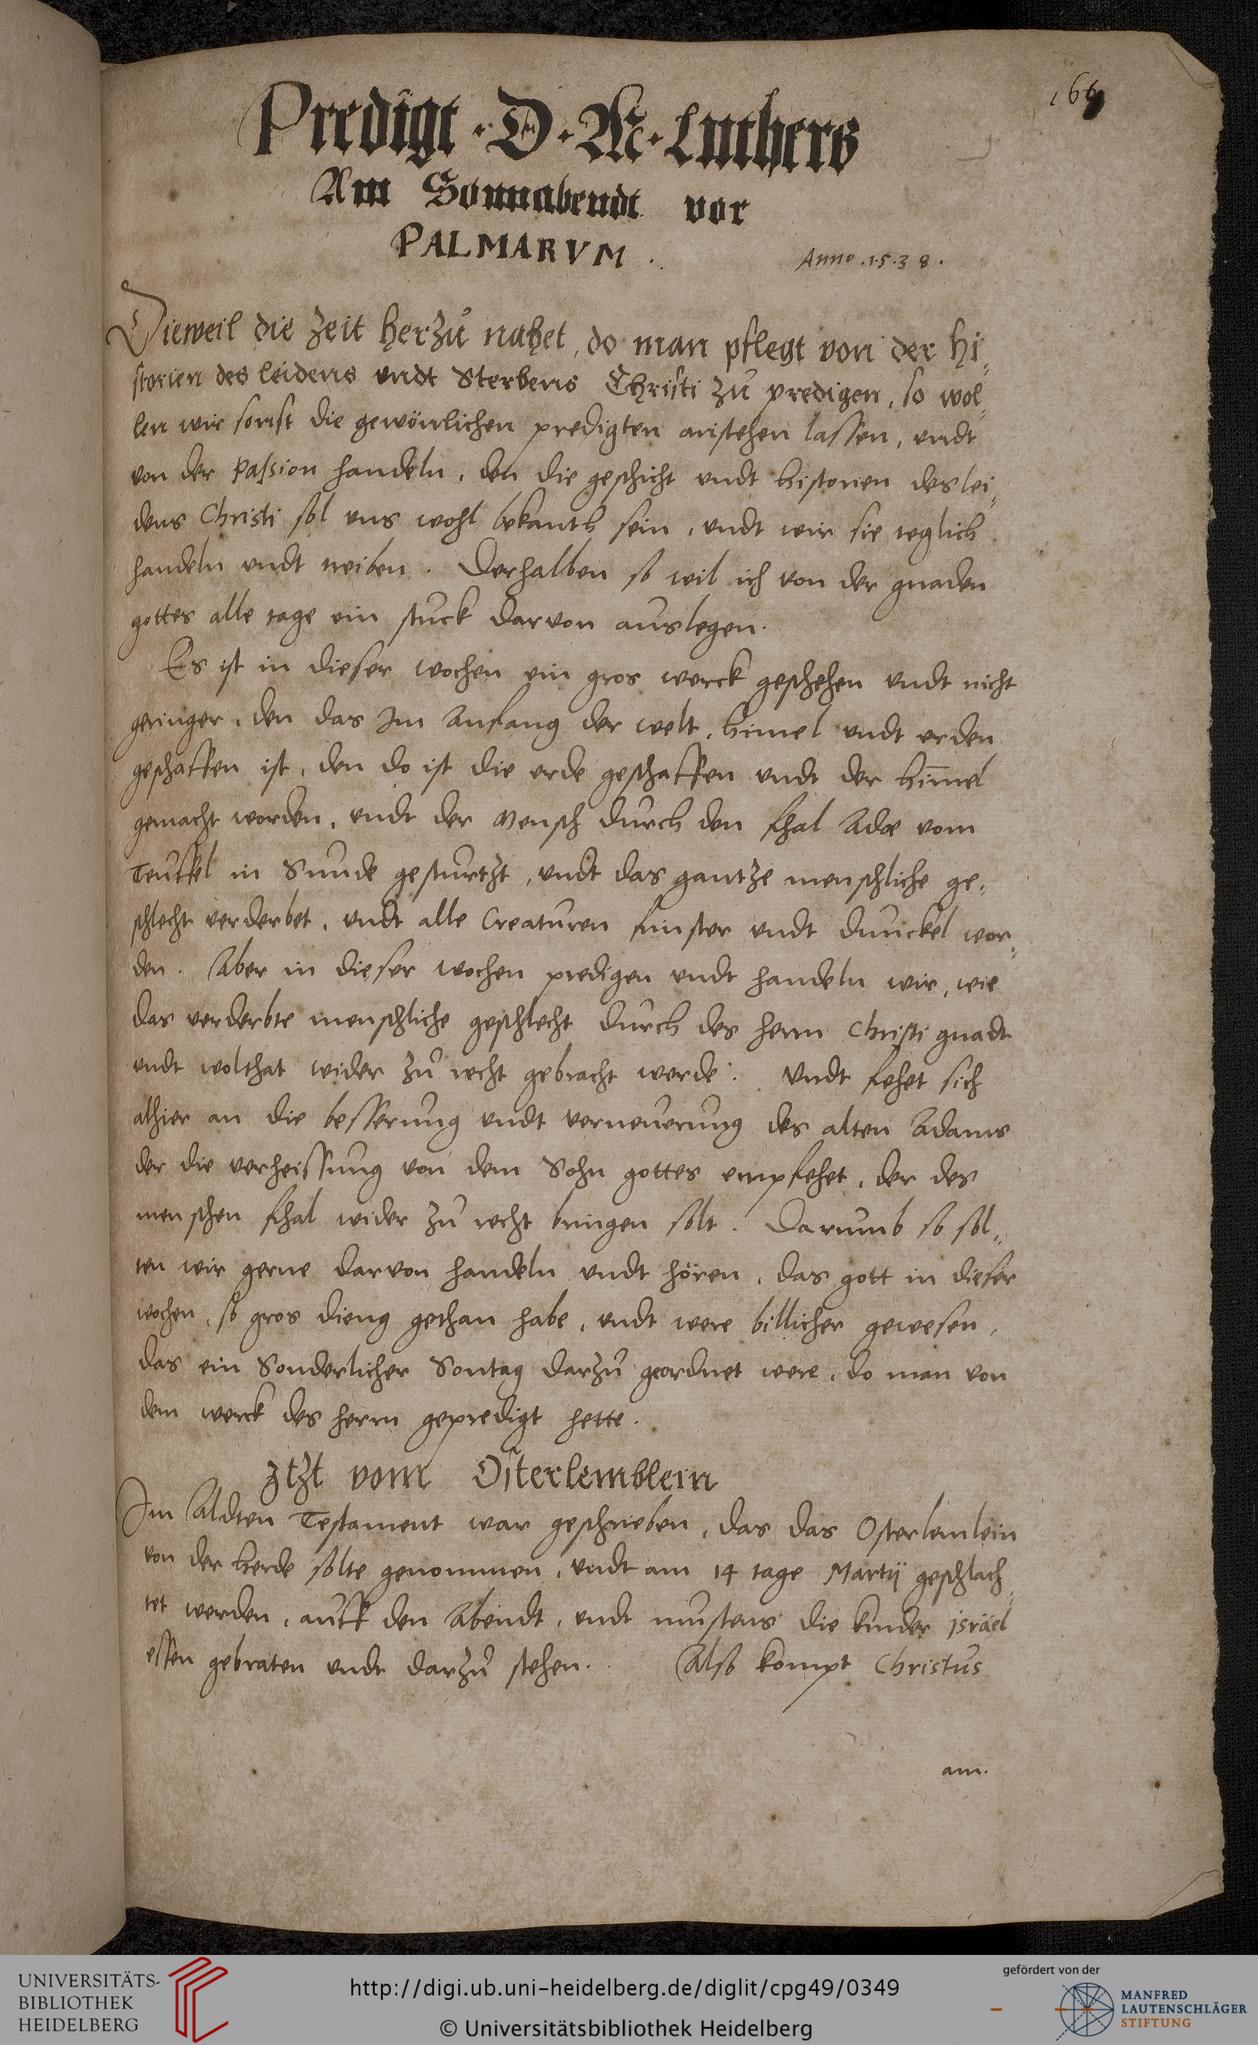 166
Predigt · D · M · Luthers
Am Sonnabendt vor
PALMARVM .
Anno .1.5.3 8 .
Dieweil die Zeit herzu nahet, do man pflegt von der hi„
storien des leidens undt Sterbens Christi zu predigen, so wol„
len wir sonst die gewönlichen predigten anstehen lassen, undt
von der Passion handeln, den die geschicht undt historien des lei„
dens Christi sol uns wohl bekanth sein, undt wir sie teglich
handeln undt treiben . Derhalben so wil ich von der gnaden
gottes alle tage ein stuck darvon auslegen.
Es ist in dieser wochen ein gros werck geschehen undt nicht
geringer, den das Im Anfang der welt, himel undt erden
geschaffen ist, den do ist die erde geschaffen undt der himel
gemacht worden, undt der Mensch durch den fhal Adæ vom
Teuffel in Sunde gesturtzt, undt das gantze menschliche ge„
schlecht verderbet, undt alle Creaturen finster undt dunckel wor„
den . Aber in dieser wochen predigen undt handeln wir, wie
das verderbte menschliche geschlecht durch des herrn Christi gnadt
undt wolthat wider zu recht gebracht werde . Undt fehet sich
alhier an die besserung undt verneuerung des alten Adams
der die verheissung von dem Sohn gottes empfehet, der des
menschen fhal wider zu recht bringen solt . Darumb so sol„
ten wir gerne darvon handeln undt hören, das gott in dieser
wochen, so gros dieng gethan habe, undt were billicher gewesen,
das ein Sonderlicher Sontag darzu geordnet were, do man von
dem werck des herrn gepredigt hette .
ztzt vom Osterlemblein
Im Aldten Testament war geschrieben, das das Osterlemlein
von der herde solte genommen, undt am 14 tage Martij geschlach„
tet werden, auff den Abendt, undt mustens die kinder israel
essen gebraten undt darzu stehen . Also kompt Christus
am.
UNIVERSITÄTS-
BIBLIOTHEK
HEIDELBERG
http://digi.ub.uni-heidelberg.de/diglit/cpg49/0349
© Universitätsbibliothek Heidelberg
gefördert von der
MANFRED
LAUTENSCHLÄGER
STIFTUNG